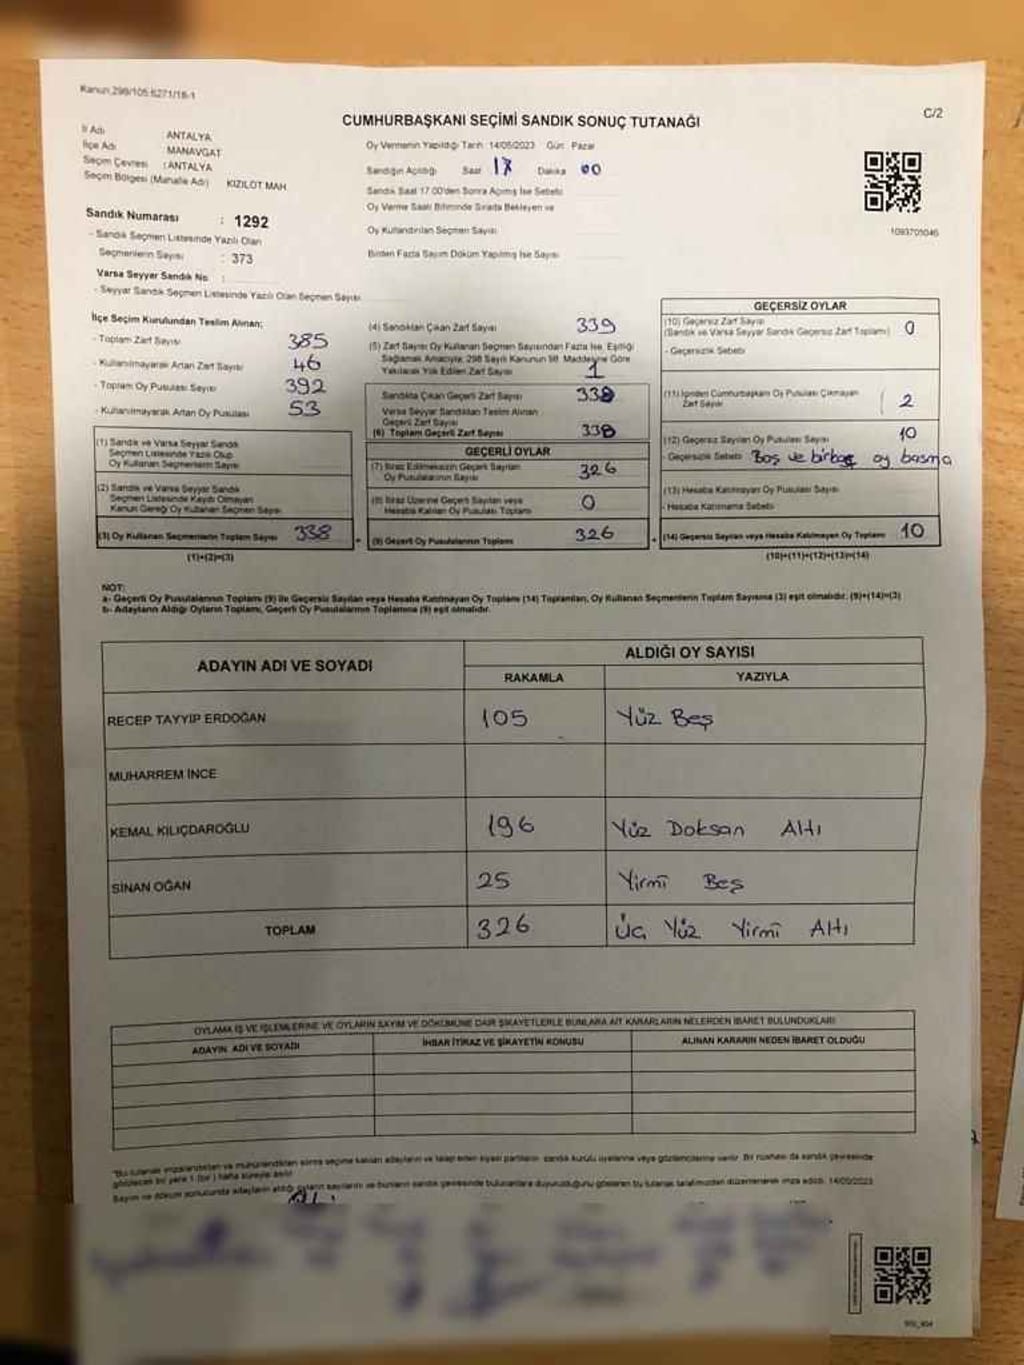 Kanun 298/105 6271/18-1
C/2
CUMHURBAŞKANI SEÇİMİ SANDIK SONUÇ TUTANAĞI
İl Adı ANTALYA
İlçe Adı MANAVGAT
Seçim Çevresi : ANTALYA
Seçim Bölgesi (Mahalle Adı) KIZILOT MAH.
Oy Vermenin Yapıldığı Tarih: 14/05/2023 Gün: Pazar
Sandığın Açıldığı Saat 17 Dakika 00
Sandık Saat 17.00'den Sonra Açılmış İse Sebebi
Oy Verme Saati Bitiminde Sırada Bekleyen ve
Oy Kullandırılan Seçmen Sayısı
Birden Fazla Sayım Döküm Yapılmış İse Sayısı
1093705046
Sandık Numarası : 1292
- Sandık Seçmen Listesinde Yazılı Olan
Seçmenlerin Sayısı : 373
Varsa Seyyar Sandık No :
- Seyyar Sandık Seçmen Listesinde Yazılı Olan Seçmen Sayısı
İlçe Seçim Kurulundan Teslim Alınan;
- Toplam Zarf Sayısı 385
- Kullanılmayarak Artan Zarf Sayısı 46
- Toplam Oy Pusulası Sayısı 392
- Kullanılmayarak Artan Oy Pusulası 53
(1) Sandık ve Varsa Seyyar Sandık
Seçmen Listesinde Yazılı Olup
Oy Kullanan Seçmenlerin Sayısı
(2) Sandık ve Varsa Seyyar Sandık
Seçmen Listesinde Kaydı Olmayan
Kanun Gereği Oy Kullanan Seçmen Sayısı
(3) Oy Kullanan Seçmenlerin Toplam Sayısı 338
(1)+(2)=(3)
(4) Sandıktan Çıkan Zarf Sayısı 339
(5) Zarf Sayısı Oy Kullanan Seçmen Sayısından Fazla İse, Eşitliği
Sağlamak Amacıyla; 298 Sayılı Kanunun 98. Maddesine Göre
Yakılarak Yok Edilen Zarf Sayısı 1
Sandıkta Çıkan Geçerli Zarf Sayısı 338
Varsa Seyyar Sandıktan Teslim Alınan
Geçerli Zarf Sayısı
(6) Toplam Geçerli Zarf Sayısı 338
GEÇERLİ OYLAR
(7) İtiraz Edilmeksizin Geçerli Sayılan
Oy Pusulalarının Sayısı 326
(8) İtiraz Üzerine Geçerli Sayılan veya
Hesaba Katılan Oy Pusulası Toplamı 0
(9) Geçerli Oy Pusulalarının Toplamı 326
GEÇERSİZ OYLAR
(10) Geçersiz Zarf Sayısı
(Sandık ve Varsa Seyyar Sandık Geçersiz Zarf Toplamı) 0
- Geçersizlik Sebebi
(11) İçinden Cumhurbaşkanı Oy Pusulası Çıkmayan
Zarf Sayısı 2
(12) Geçersiz Sayılan Oy Pusulası Sayısı 10
- Geçersizlik Sebebi Boş ve birboş oy basma
(13) Hesaba Katılmayan Oy Pusulası Sayısı
- Hesaba Katılmama Sebebi
(14) Geçersiz Sayılan veya Hesaba Katılmayan Oy Toplamı 10
(10)+(11)+(12)+(13)=(14)
NOT:
a- Geçerli Oy Pusulalarının Toplamı (9) ile Geçersiz Sayılan veya Hesaba Katılmayan Oy Toplamı (14) Toplamları, Oy Kullanan Seçmenlerin Toplam Sayısına (3) eşit olmalıdır. (9)+(14)=(3)
b- Adayların Aldığı Oyların Toplamı, Geçerli Oy Pusulalarının Toplamına (9) eşit olmalıdır.
ADAYIN ADI VE SOYADI
ALDIĞI OY SAYISI
RAKAMLA YAZIYLA
RECEP TAYYİP ERDOĞAN 105 Yüz Beş
MUHARREM İNCE
KEMAL KILIÇDAROĞLU 196 Yüz Doksan Altı
SİNAN OĞAN 25 Yirmi Beş
TOPLAM 326 Üç Yüz Yirmi Altı
OYLAMA İŞ VE İŞLEMLERİNE VE OYLARIN SAYIM VE DÖKÜMÜNE DAİR ŞİKAYETLERLE BUNLARA AİT KARARLARIN NELERDEN İBARET BULUNDUKLARI
ADAYIN ADI VE SOYADI İHBAR İTİRAZ VE ŞİKAYETİN KONUSU ALINAN KARARIN NEDEN İBARET OLDUĞU
"Bu tutanak imzalandıktan ve mühürlendikten sonra seçime katılan adayların ve talep eden siyasi partilerin sandık kurulu üyelerine veya gözlemcilerine verilir. Bir nüshası da sandık çevresinde
görülecek bir yere 1 (bir) hafta süreyle asılır
Sayım ve döküm sonucunda adayların aldığı oyların sayılarını ve bunların sandık çevresinde bulunanlara duyurulduğunu gösteren bu tutanak tarafımızdan düzenlenerek imza edildi. 14/05/2023